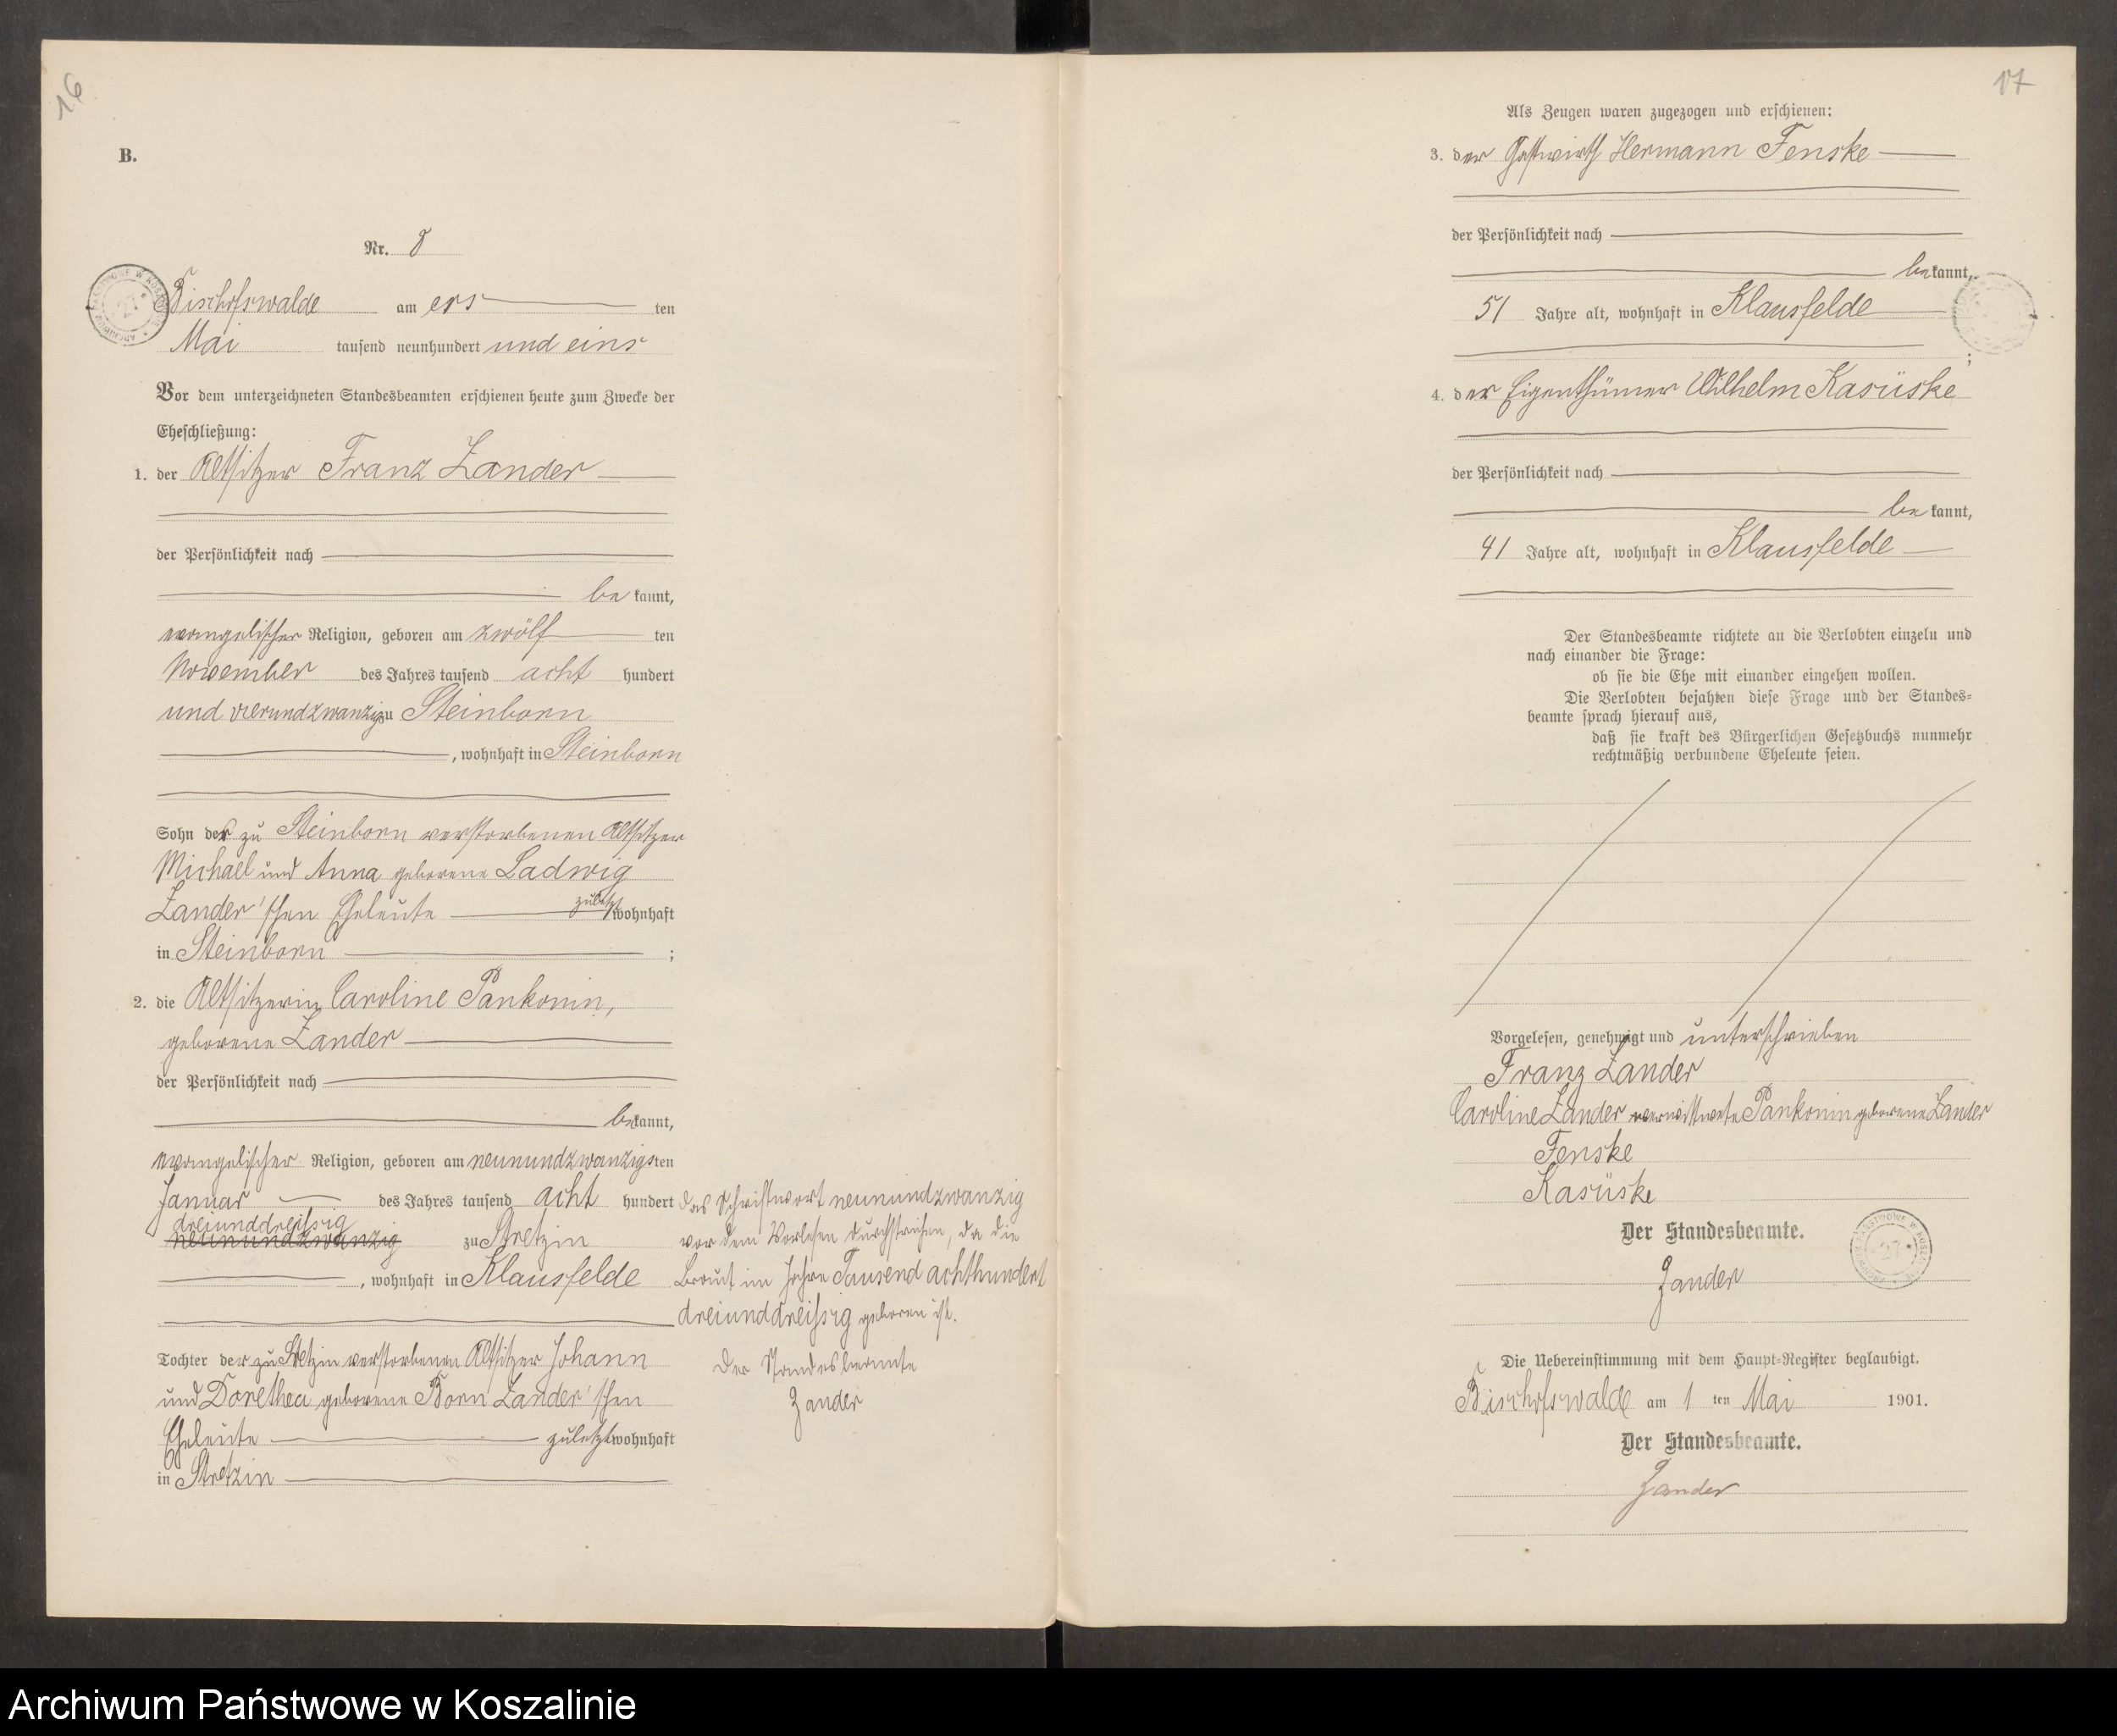 16
B.
Nr. 8
Bischofswalde am ers ten
Mai tausend neunhundert und eins
Vor dem unterzeichneten Standesbeamten erschienen heute zum Zwecke der
Eheschließung:
1. der Altsitzer Franz Zander
der Persönlichkeit nach
be kannt,
evangelischer Religion, geboren am zwölf ten
November des Jahres tausend acht hundert
und vierundzwanzig zu Steinborn
, wohnhaft in Steinborn
Sohn der zu Steinborn verstorbenen Altsitzer
Michael und Anna geborene Ladwig
Zander'schen Eheleute zuletzt wohnhaft
in Steinborn ;
2. die Altsitzerin Caroline Pankonin,
geborene Zander
der Persönlichkeit nach
bekannt,
evangelischer Religion, geboren am neunundzwanzigsten
Januar des Jahres tausend acht hundert
dreiunddreissig
neunundzwanzig zu Stretzin
, wohnhaft in Klausfelde
Tochter der zu Stretzin verstorbenen Altsitzer Johann
und Dorethea geborene Born Zander'schen
Eheleute zuletzt wohnhaft
in Stretzin
das Schriftwort neunundzwanzig
vor dem Vorlesen durchstrichen, da die
Braut im Jahre Tausend achthundert
dreiunddreissig geboren ist.
Der Standesbeamte
Zander
17
Als Zeugen waren zugezogen und erschienen:
3. der Gastwirth Hermann Fenske
der Persönlichkeit nach
be kannt,
51 Jahre alt, wohnhaft in Klausfelde
;
4. der Eigenthümer Wilhelm Kasüske
der Persönlichkeit nach
be kannt,
41 Jahre alt, wohnhaft in Klausfelde
Der Standesbeamte richtete an die Verlobten einzeln und
nach einander die Frage:
ob sie die Ehe mit einander eingehen wollen.
Die Verlobten bejahten diese Frage und der Standes-
beamte sprach hierauf aus,
daß sie kraft des Bürgerlichen Gesetzbuchs nunmehr
rechtmäßig verbundene Eheleute seien.
Vorgelesen, genehmigt und unterschrieben
Franz Zander
Caroline Zander verwittwete Pankonin geborene Zander
Fenske
Kasüske
Der Standesbeamte.
Zander
Die Uebereinstimmung mit dem Haupt-Register beglaubigt.
Bischofswalde am 1 ten Mai 1901.
Der Standesbeamte.
Zander
Archiwum Państwowe w Koszalinie